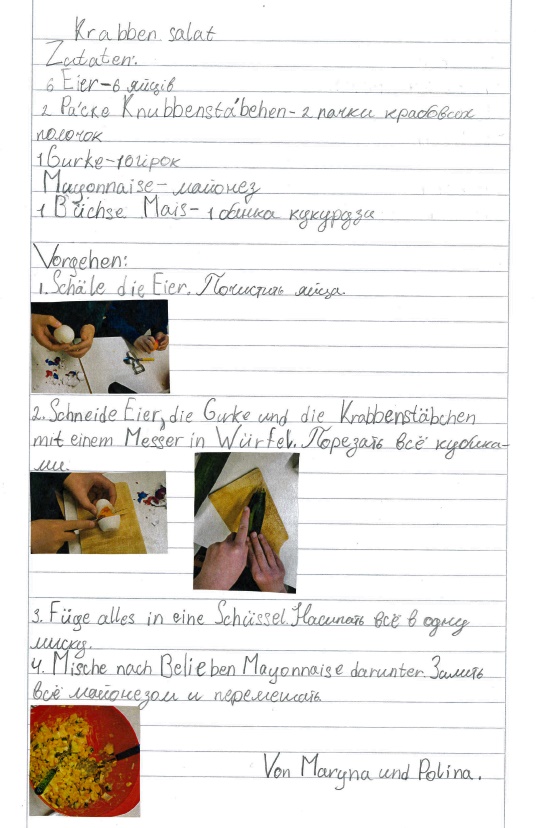 Krabben salat
Zutaten:
6 Eier-6 яйців
2 Päcke Knubbenstäbehen-2 пачки крабових
полочок
1 Gurke-1 огірок
Mayonnaise-майонез
1 Büchse Mais-1 банка кукурдза
Vorgehen:
1. Schäle die Eier. Почистить яйца.
2. Schneide Eier, die Gurke und die Krabbenstäbchen
mit einem Messer in Würfel. Порезать всё кубика-
ми.
3. Füge alles in eine Schüssel. Насипать всё в одну
миску.
4. Mische nach Belieben Mayonnaise darunter. Залить
всё майонезом и перемешать.
Von Maryna und Polina.